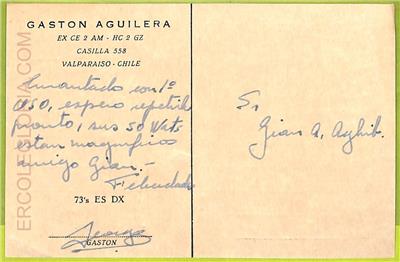 GASTON AGUILERA
EX CE 2 AM - HC 2 GZ
CASILLA 558
VALPARAISO - CHILE
Encantado con 1º
QSO, espero repetirlo
pronto, sus 50 Wats
estan magnificos
amigo Gian.-
Felicidades
73's ES DX
GASTON
Sr
Gian A. Aghib.
ERCOLEGLORIA.COM